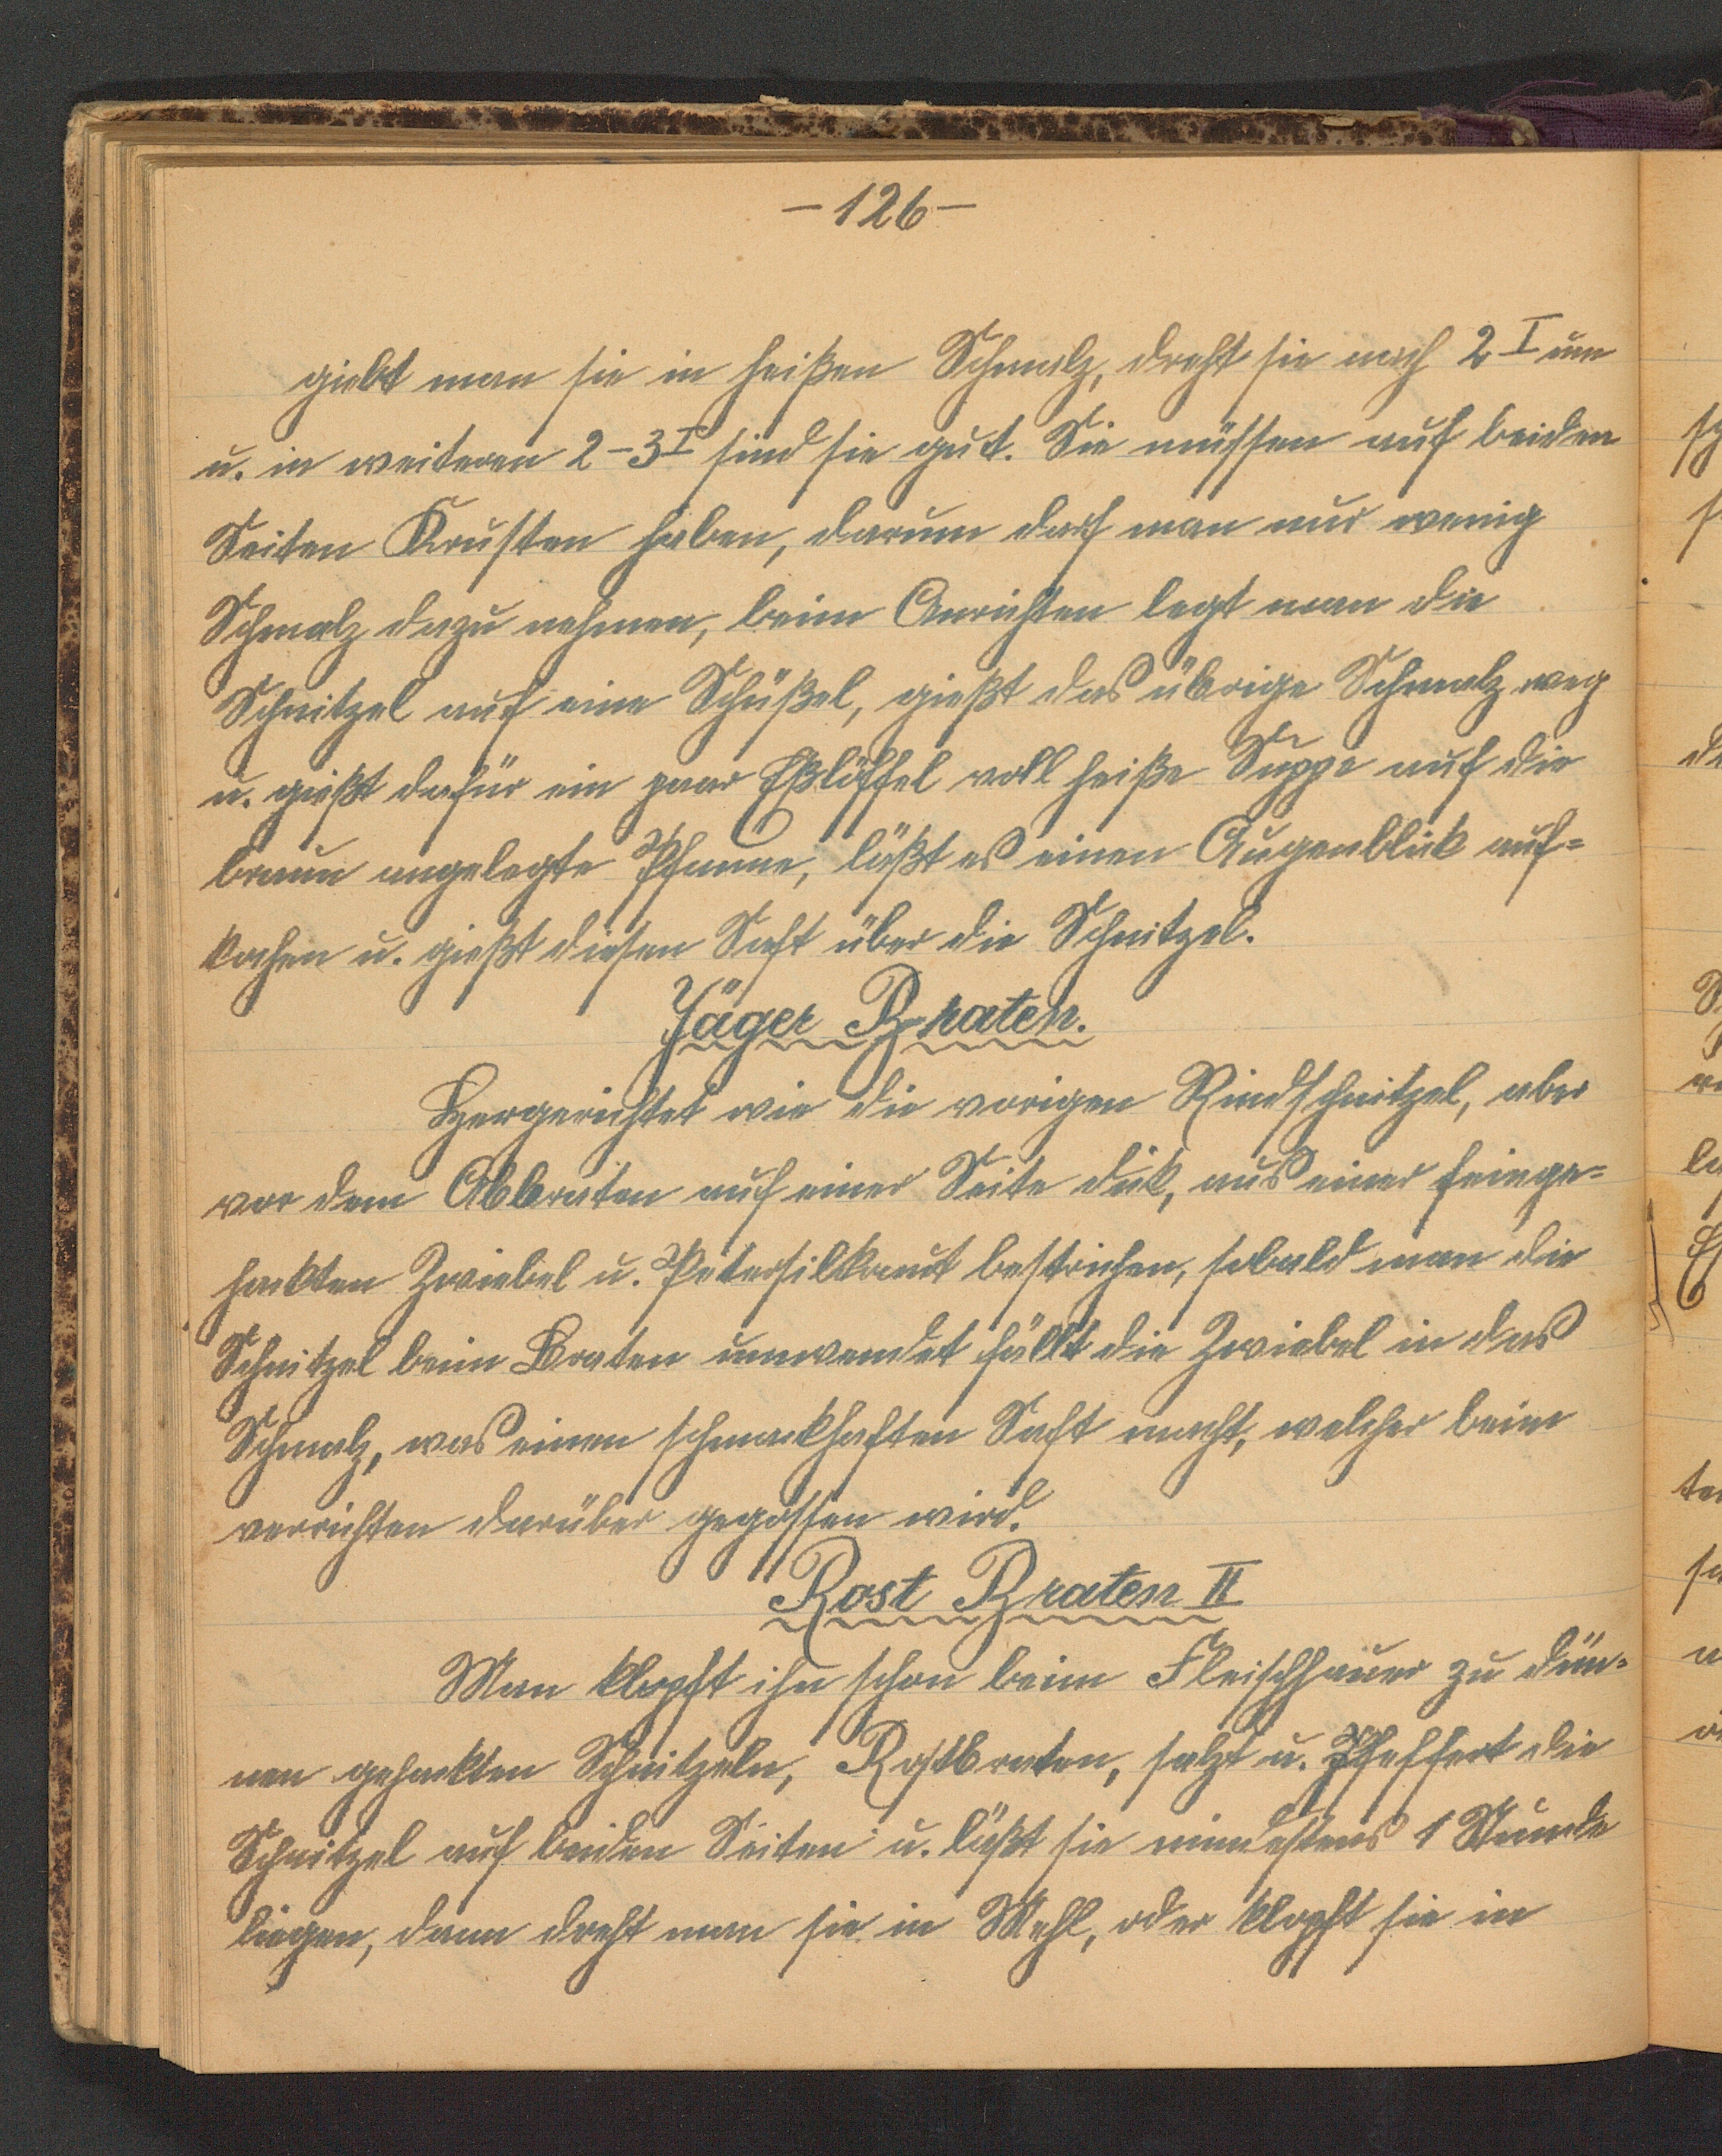 —126—
giebt man sie in heißen Schmalz, dreht sie nach 2 I um
u. in weiteren 2–3 I sind sie gut. Sie müssen auf beiden
Seiten Krusten haben, darum darf man nur wenig
Schmalz dazu nehmen, beim Anrichten legt man die
Schnitzel auf eine Schüßel, gießt das übrige Schmalz weg
u. gießt dafür ein paar Eßlöffel voll heiße Suppe auf die
braun angelegte Pfanne, läßt es einen Augenblick auf=
kochen u. gießt diesen Saft über die Schnitzel.
Jäger Braten.
Hergerichtet wie die vorigen Rindschnitzel, aber
vor dem Abbraten auf einer Seite dick, aus einer feinge=
hackten Zwiebel u. Petersilkraut bestrichen, sobald man die
Schnitzel beim Braten umwendet fällt die Zwiebel in das
Schmalz, was einen schmackhaften Saft macht, welcher beim
verrichten darüber gegossen wird.
Rost Braten II
Man klopft ihn schon beim Fleischhauer zu dün-
nen gehackten Schnitzeln, Rostbraten, salzt u. Pfeffert die
Schnitzel auf beiden Seiten u. läßt sie mindestens 1 Stunde
liegen, dann dreht man sie in Mehl, oder klopft sie in